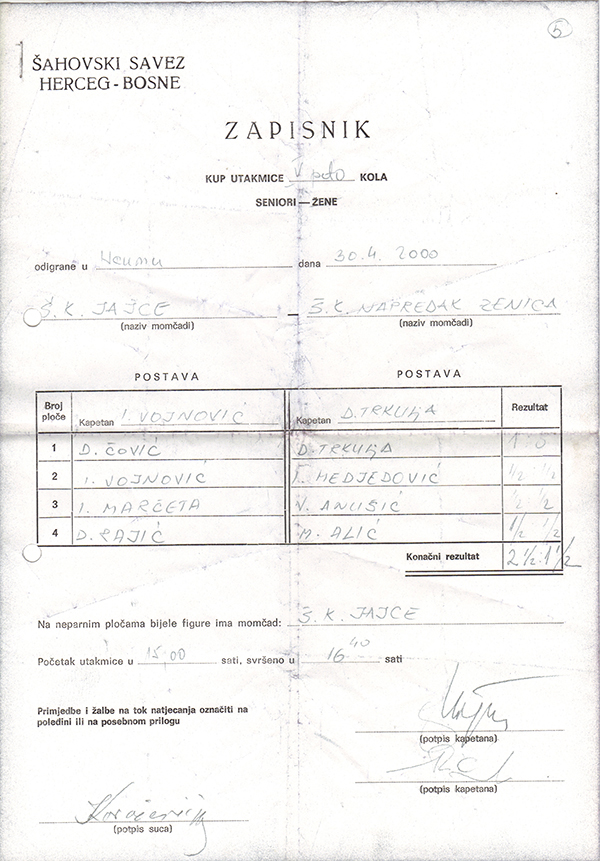 5
ŠAHOVSKI SAVEZ
HERCEG-BOSNE
ZAPISNIK
KUP UTAKMICE V peto KOLA
SENIORI — ŽENE
odigrane u Neumu dana 30.4. 2000
Š.K. JAJCE — Š.K. NAPREDAK ZENICA
(naziv momčadi) (naziv momčadi)
POSTAVA POSTAVA
Broj ploče Kapetan I. VOJNOVIĆ Kapetan D. TRKULJA Rezultat
1 D. ČOVIĆ D. TRKULJA 1 0
2 I. VOJNOVIĆ MEDJEDOVIĆ ½ ½
3 I. MARČETA V. ANUŠIĆ ½ ½
4 D. M. ALIĆ ½ ½
Konačni rezultat 2½:1½
Na neparnim pločama bijele figure ima momčad: Š.K. JAJCE
Početak utakmice u 15,00 sati, svršeno u 16 40 sati
Primjedbe i žalbe na tok natjecanja označiti na
poleđini ili na posebnom prilogu
(potpis kapetana)
(potpis kapetana)
(potpis suca)